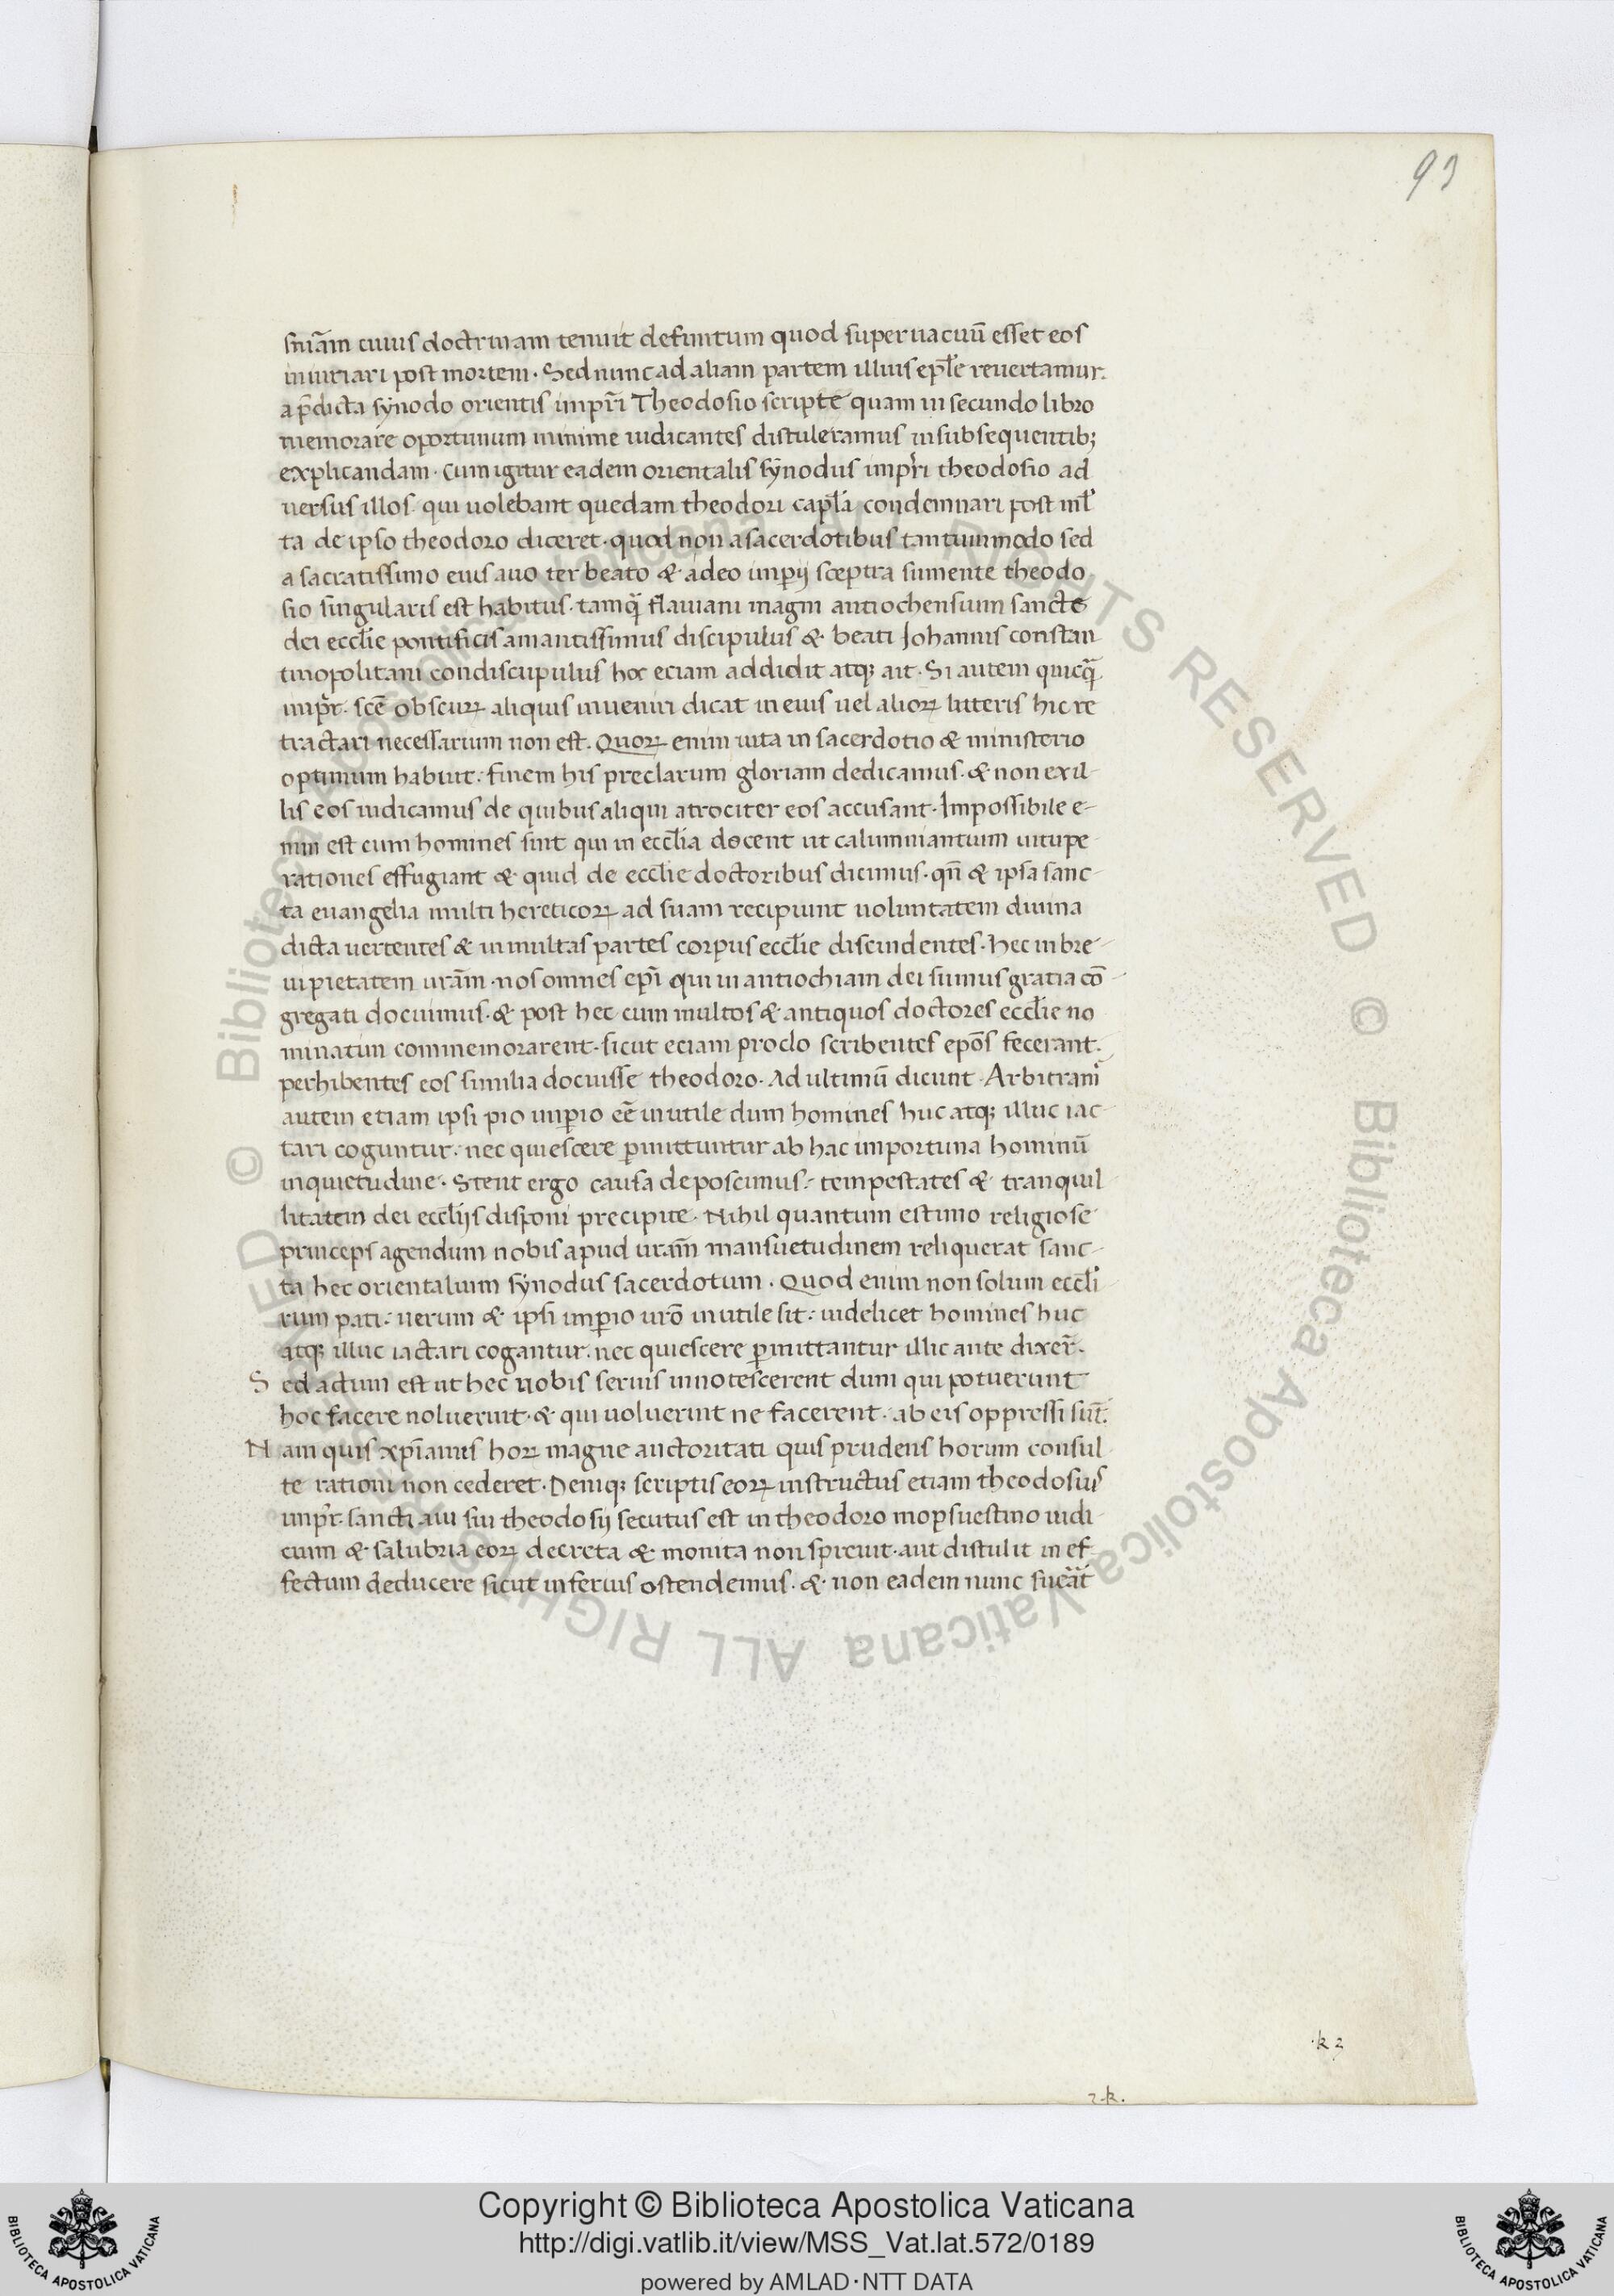 93
sn̄iam cuius doctrinam tenuit defunctum quod superuacuū esset eos
iniuriari post mortem · Sed nunc ad aliam partem illius epl̄e reuertamur.
a p̄dicta synodo orientis impr̄i Theodosio scripte quam in secundo libro
memorare oportunum minime iudicantes distuleramus in subsequentib;
explicandam · cum igitur eadem orientalis synodus impr̄i theodosio ad
uersus illos qui uolebant quedam theodori capl̄a condemnari post ml̄
ta de ipso theodoro diceret · quod non a sacerdotibus tantummodo sed
a sacratissimo eius auo ter beato & a deo imp̄ij sceptra sumente theodo
sio singularis est habitus · tamq̄ flauiani magni antiochensium sancte
dei eccl̄ie pontificis amantissimus discipulus & beati Johannis constan
tinopolitani condiscipulus hoc eciam addidit atq; ait · Si autem quicq̄
impr̄ · scē obscuꝝ aliquis inueniri dicat in eius uel alioꝝ litteris hic re
tractari necessarium non est · Quoꝝ enim uita in sacerdotio & ministerio
optimum habuit : finem his preclarum gloriam dedicamus · & non ex il-
lis eos iudicamus de quibus aliqui atrociter eos accusant · Impossibile e-
nim est cum homines sint qui in eccl̄ia docent ut calumniantium uitupe
rationes effugiant & quid de eccl̄ie doctoribus dicimus · qn̄ & ipsa sanc-
ta euangelia multi hereticoꝝ ad suam recipiunt uoluntatem diuina
dicta uertentes & in multas partes corpus eccl̄ie discindentes · Hec in bre-
ui pietatem ur̄am · nos omnes ep̄i qui in antiochiam dei sumus gratia cō-
gregati docuimus · & post hec cum multos & antiquos doctores eccl̄ie no
minatim commemorarent · sicut eciam proclo scribentes epōs fecerant.
perhibentes eos similia docuisse theodoro · Ad ultimū dicunt · Arbitram̄
autem etiam ipsi pio imp̄io eē inutile dum homines huc atq; illuc iac-
tari coguntur : nec quiescere p̄mittuntur ab hac importuna hominū
inquietudine · Stent ergo causa deposcimus : tempestates & tranquil
litatem dei eccl̄ijs disponi precipite · Nihil quantum estimo religiose
princeps agendum nobis apud ur̄am mansuetudinem reliquerat sanc-
ta hec orientalium synodus sacerdotum · Quod enim non solum eccl̄i
rum pati : uerum & ipsi imp̄io ur̄o inutile sit : uidelicet homines huc
atq; illuc iactari cogantur · nec quiescere p̄mittantur illic ante dixer̄ ·
Sed actum est ut hec nobis seruis innotescerent dum qui potuerunt
hoc facere noluerint · & qui uoluerint ne facerent · ab eis oppressi sūt.
Nam quis xp̄ianus hoꝝ magne auctoritati quis prudens horum consul
te rationi non cederet · Deniq; scriptis eoꝝ instructus etiam theodosius
impr̄ · sancti aui sui theodosij secutus est in theodoro mopsuestino iudi
cium & salubria eoꝝ decreta & monita non spreuit · aut distulit in ef
fectum deducere sicut inferius ostendemus · & non eadem nunc
·k 2
2·k·
© Biblioteca Apostolica Vaticana ALL RIGHTS RESERVED © Biblioteca Apostolica Vaticana ALL RIGHTS RESERVED
Copyright © Biblioteca Apostolica Vaticana
http://digi.vatlib.it/view/MSS_Vat.lat.572/0189
powered by AMLAD·NTT DATA
BIBLIOTECA APOSTOLICA VATICANA
BIBLIOTECA APOSTOLICA VATICANA